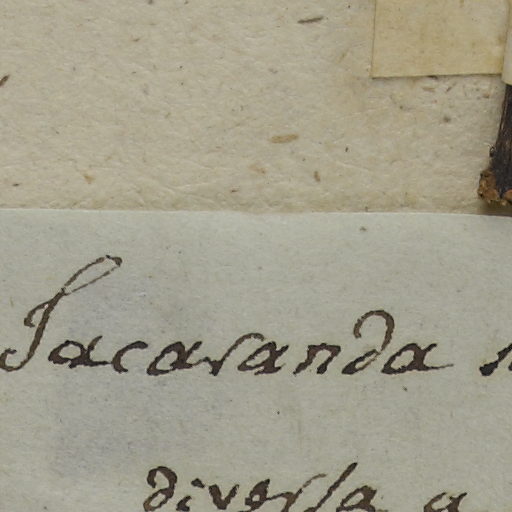 Jacaranda
diversa a